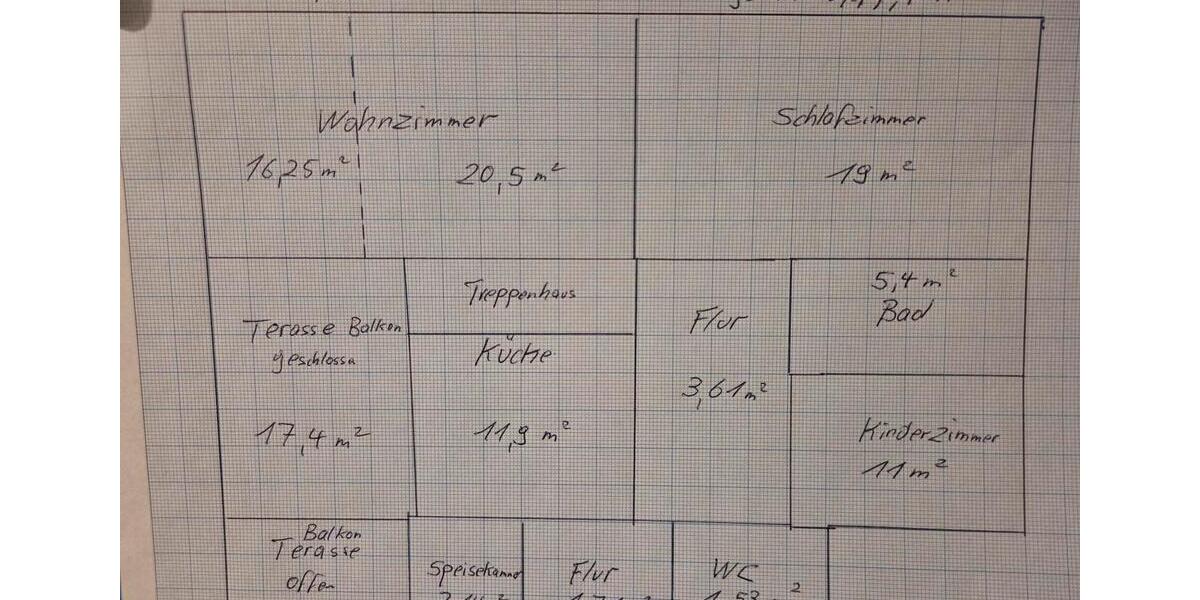 Wohnzimmer
16,25 m²
20,5 m²
Schlafzimmer
19 m²
Terasse Balkon
geschlossn
17,4 m²
Treppenhaus
Küche
11,9 m²
Flur
3,61 m²
5,4 m²
Bad
Kinderzimmer
11 m²
Balkon
Terasse
offen
Speisekammer
Flur
WC